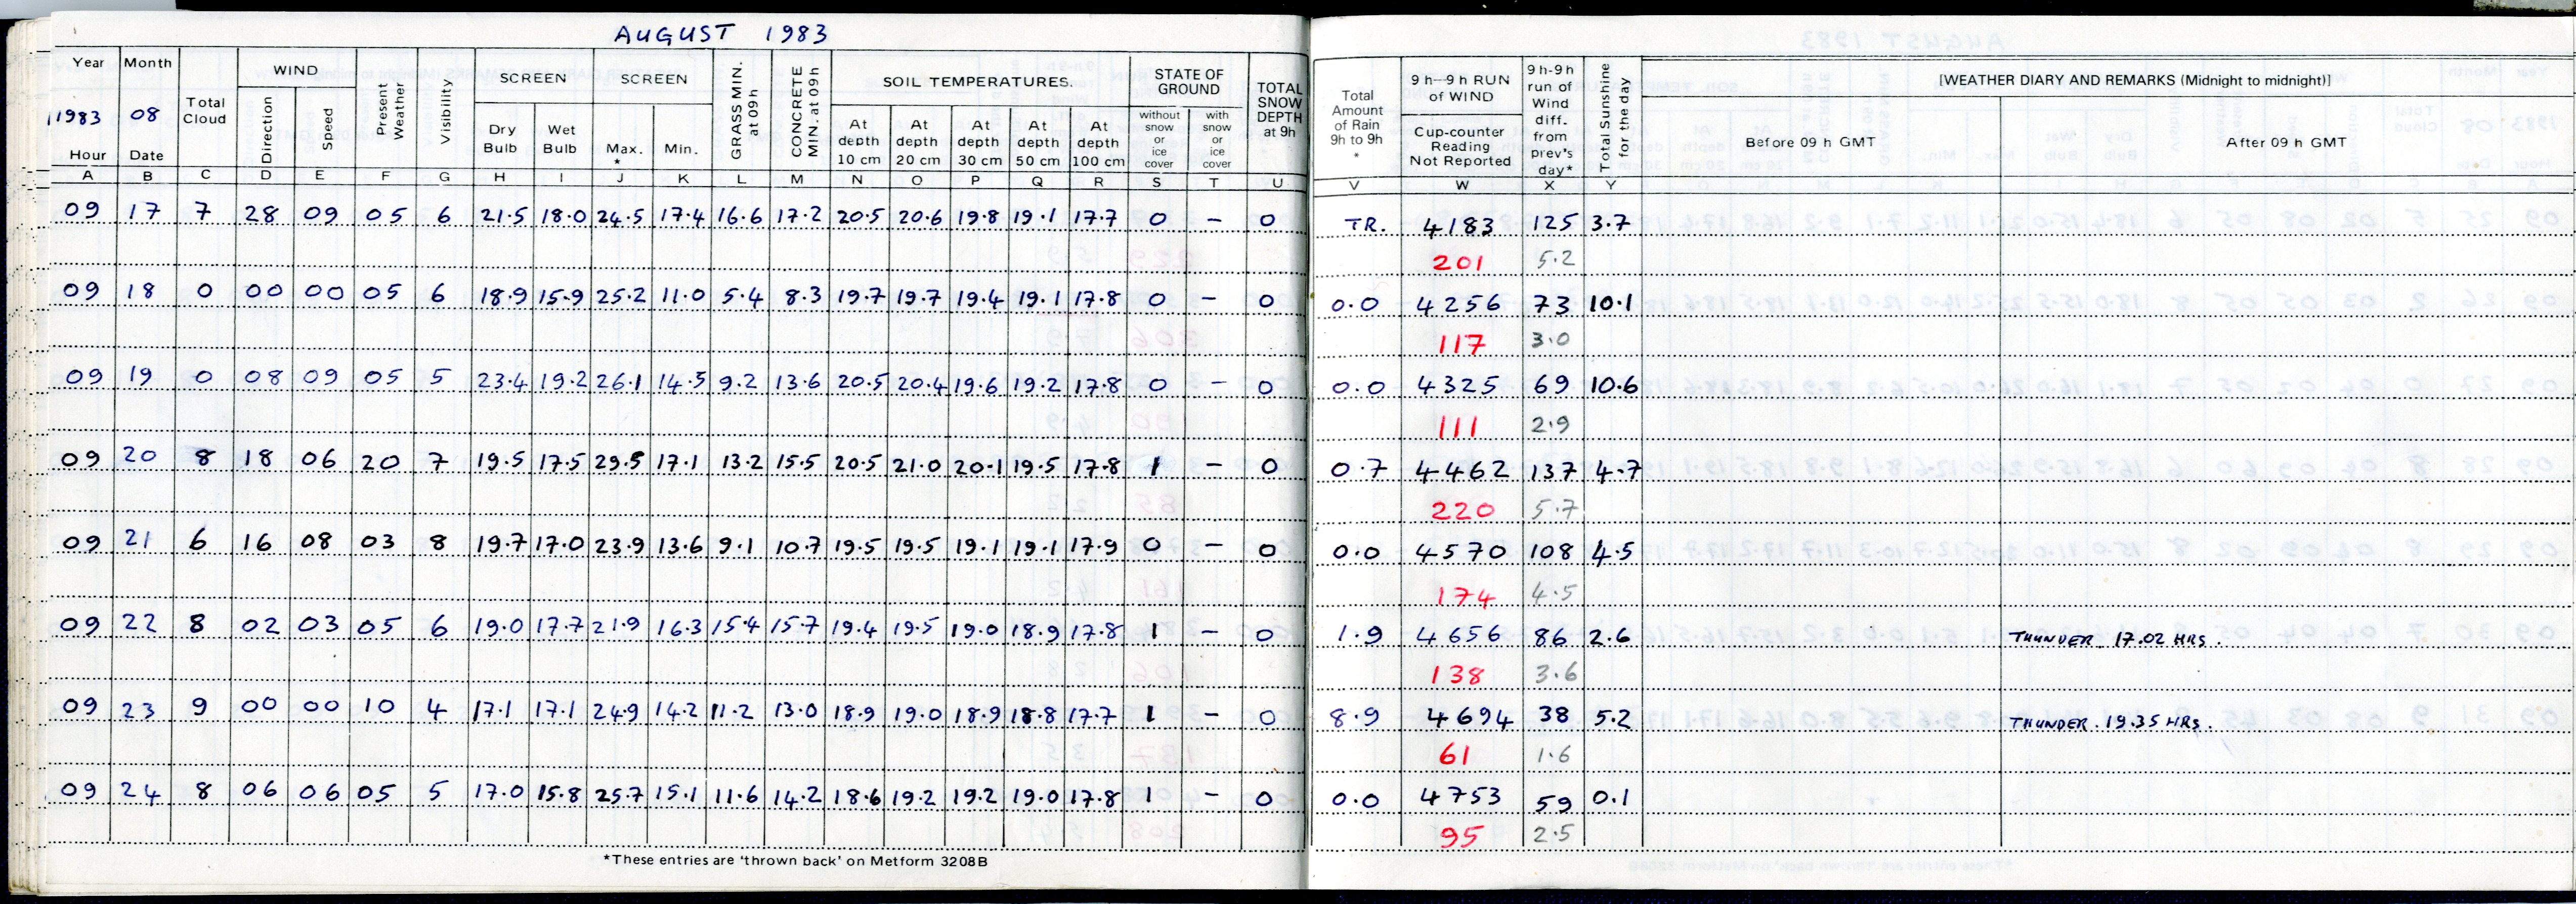 AUGUST 1983
Year Month Total Cloud WIND Present Weather Visibility SCREEN SCREEN GRASS MIN. at 09h CONCRETE MIN. at 09h SOIL TEMPERATURES. STATE OF GROUND TOTAL SNOW DEPTH at 9h
1983 08 Direction Speed Dry Bulb Wet Bulb Max. * Min. At depth 10 cm At depth 20 cm At depth 30 cm At depth 50 cm At depth 100 cm without snow or ice cover with snow or ice cover
Hour Date
A B C D E F G H I J K L M N O P Q R S T U
09 17 7 28 09 05 6 21.5 18.0 24.5 17.4 16.6 17.2 20.5 20.6 19.8 19.1 17.7 0 – 0
09 18 0 00 00 05 6 18.9 15.9 25.2 11.0 5.4 8.3 19.7 19.7 19.4 19.1 17.8 0 – 0
09 19 0 08 09 05 5 23.4 19.2 26.1 14.5 9.2 13.6 20.5 20.4 19.6 19.2 17.8 0 – 0
09 20 8 18 06 20 7 19.5 17.5 29.5 17.1 13.2 15.5 20.5 21.0 20.1 19.5 17.8 1 – 0
09 21 6 16 08 03 8 19.7 17.0 23.9 13.6 9.1 10.7 19.5 19.5 19.1 19.1 17.9 0 – 0
09 22 8 02 03 05 6 19.0 17.7 21.9 16.3 15.4 15.7 19.4 19.5 19.0 18.9 17.8 1 – 0
09 23 9 00 00 10 4 17.1 17.1 24.9 14.2 11.2 13.0 18.9 19.0 18.9 18.8 17.7 1 – 0
09 24 8 06 06 05 5 17.0 15.8 25.7 15.1 11.6 14.2 18.6 19.2 19.2 19.0 17.8 1 – 0
*These entries are 'thrown back' on Metform 3208B
Total Amount of Rain 9h to 9h * 9h–9h RUN of WIND Cup-counter Reading Not Reported 9h-9h run of Wind diff. from prev's day* Total Sunshine for the day [WEATHER DIARY AND REMARKS (Midnight to midnight)]
Before 09 h GMT After 09 h GMT
V W X Y
TR. 4183 125 3.7
201 5.2
0.0 4256 73 10.1
117 3.0
0.0 4325 69 10.6
111 2.9
0.7 4462 137 4.7
220 5.7
0.0 4570 108 4.5
174 4.5
1.9 4656 86 2.6 THUNDER 17.02 HRS.
138 3.6
8.9 4694 38 5.2 THUNDER. 19.35 HRS.
61 1.6
0.0 4753 59 0.1
95 2.5